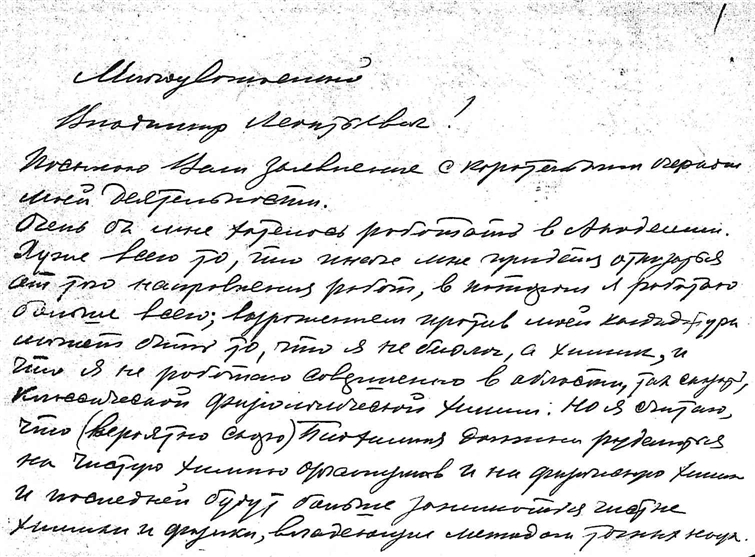 Многоуважаемый
Владимир Леонтьевич!
Посылаю Вам заявление с коротеньким очерком
моей деятельности.
Очень бы мне хотелось работать в Академии.
Хуже всего то, что иначе мне придется отказаться
от того направления работ, в котором я работаю
больше всего; возражением против моей кандидатуры
может быть то, что я не биолог, а химик, и
что я не работаю совершенно в области, так сказать,
классической физиологической химии. Но я считаю,
что (вероятно скоро) биохимия должна разделиться
на чистую химию организмов и на физическую химию
и последней будут больше заниматься чистые
химики и физики, владеющие методом точных наук